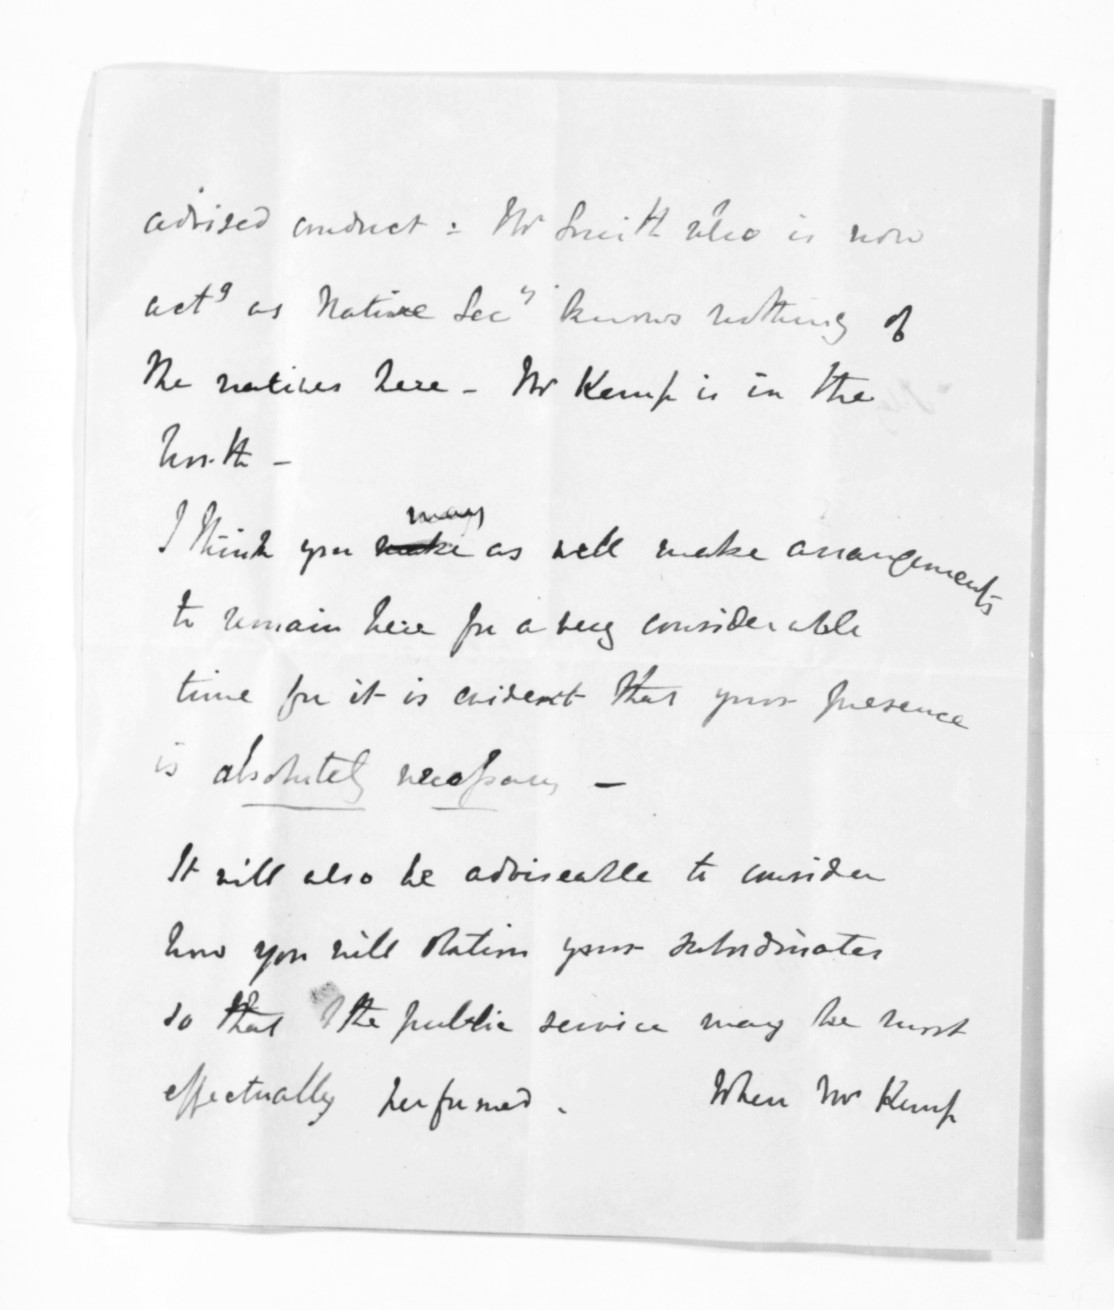 advised conduct : Mr Smith who is now
actg as Native Secy knows nothing of
the natives here - Mr Kemp is in the
North -
I think you make may as well make arrangements
to remain here for a very considerable
time for it is evident that your presence
is absolutely necessary -
It will also be adviseable to consider
how you will station your subordinates
so that the public service may be most
effectually performed . When Mr Kemp